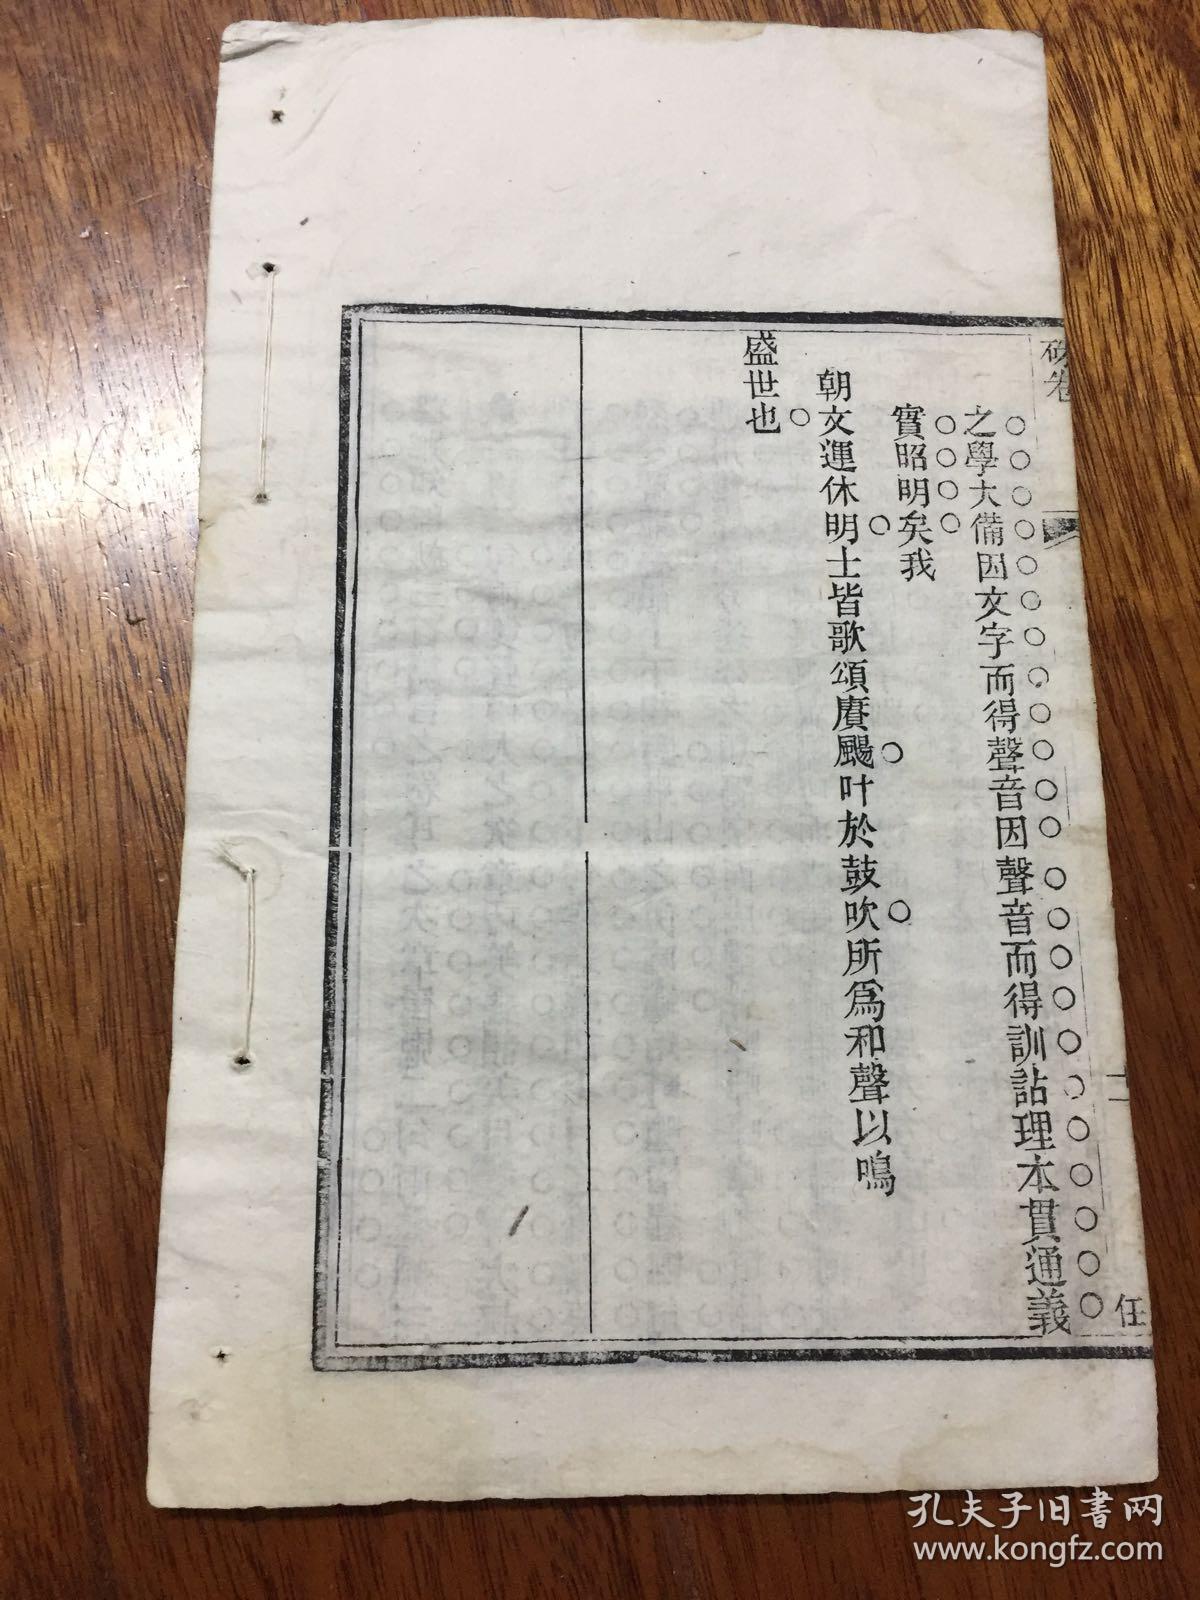 之學大備因文字而得聲音因聲音而得訓詁理本貫通義
實昭明矣我
朝文運休明士皆歌頌賡颺叶於鼓吹所爲和聲以鳴
盛世也
卷
任
孔夫子旧书网
www.kongfz.com